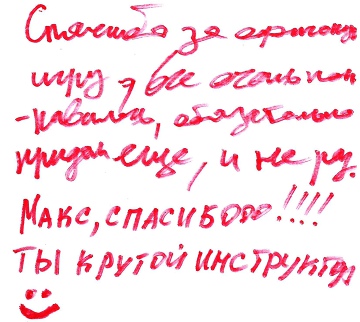 Спасибо за отличную
игру, все очень пон
-равилось, обязательно
придем еще, и не раз.
МАКС, СПАСИБООО!!!!
ТЫ КРУТОЙ ИНСТРУКТОР